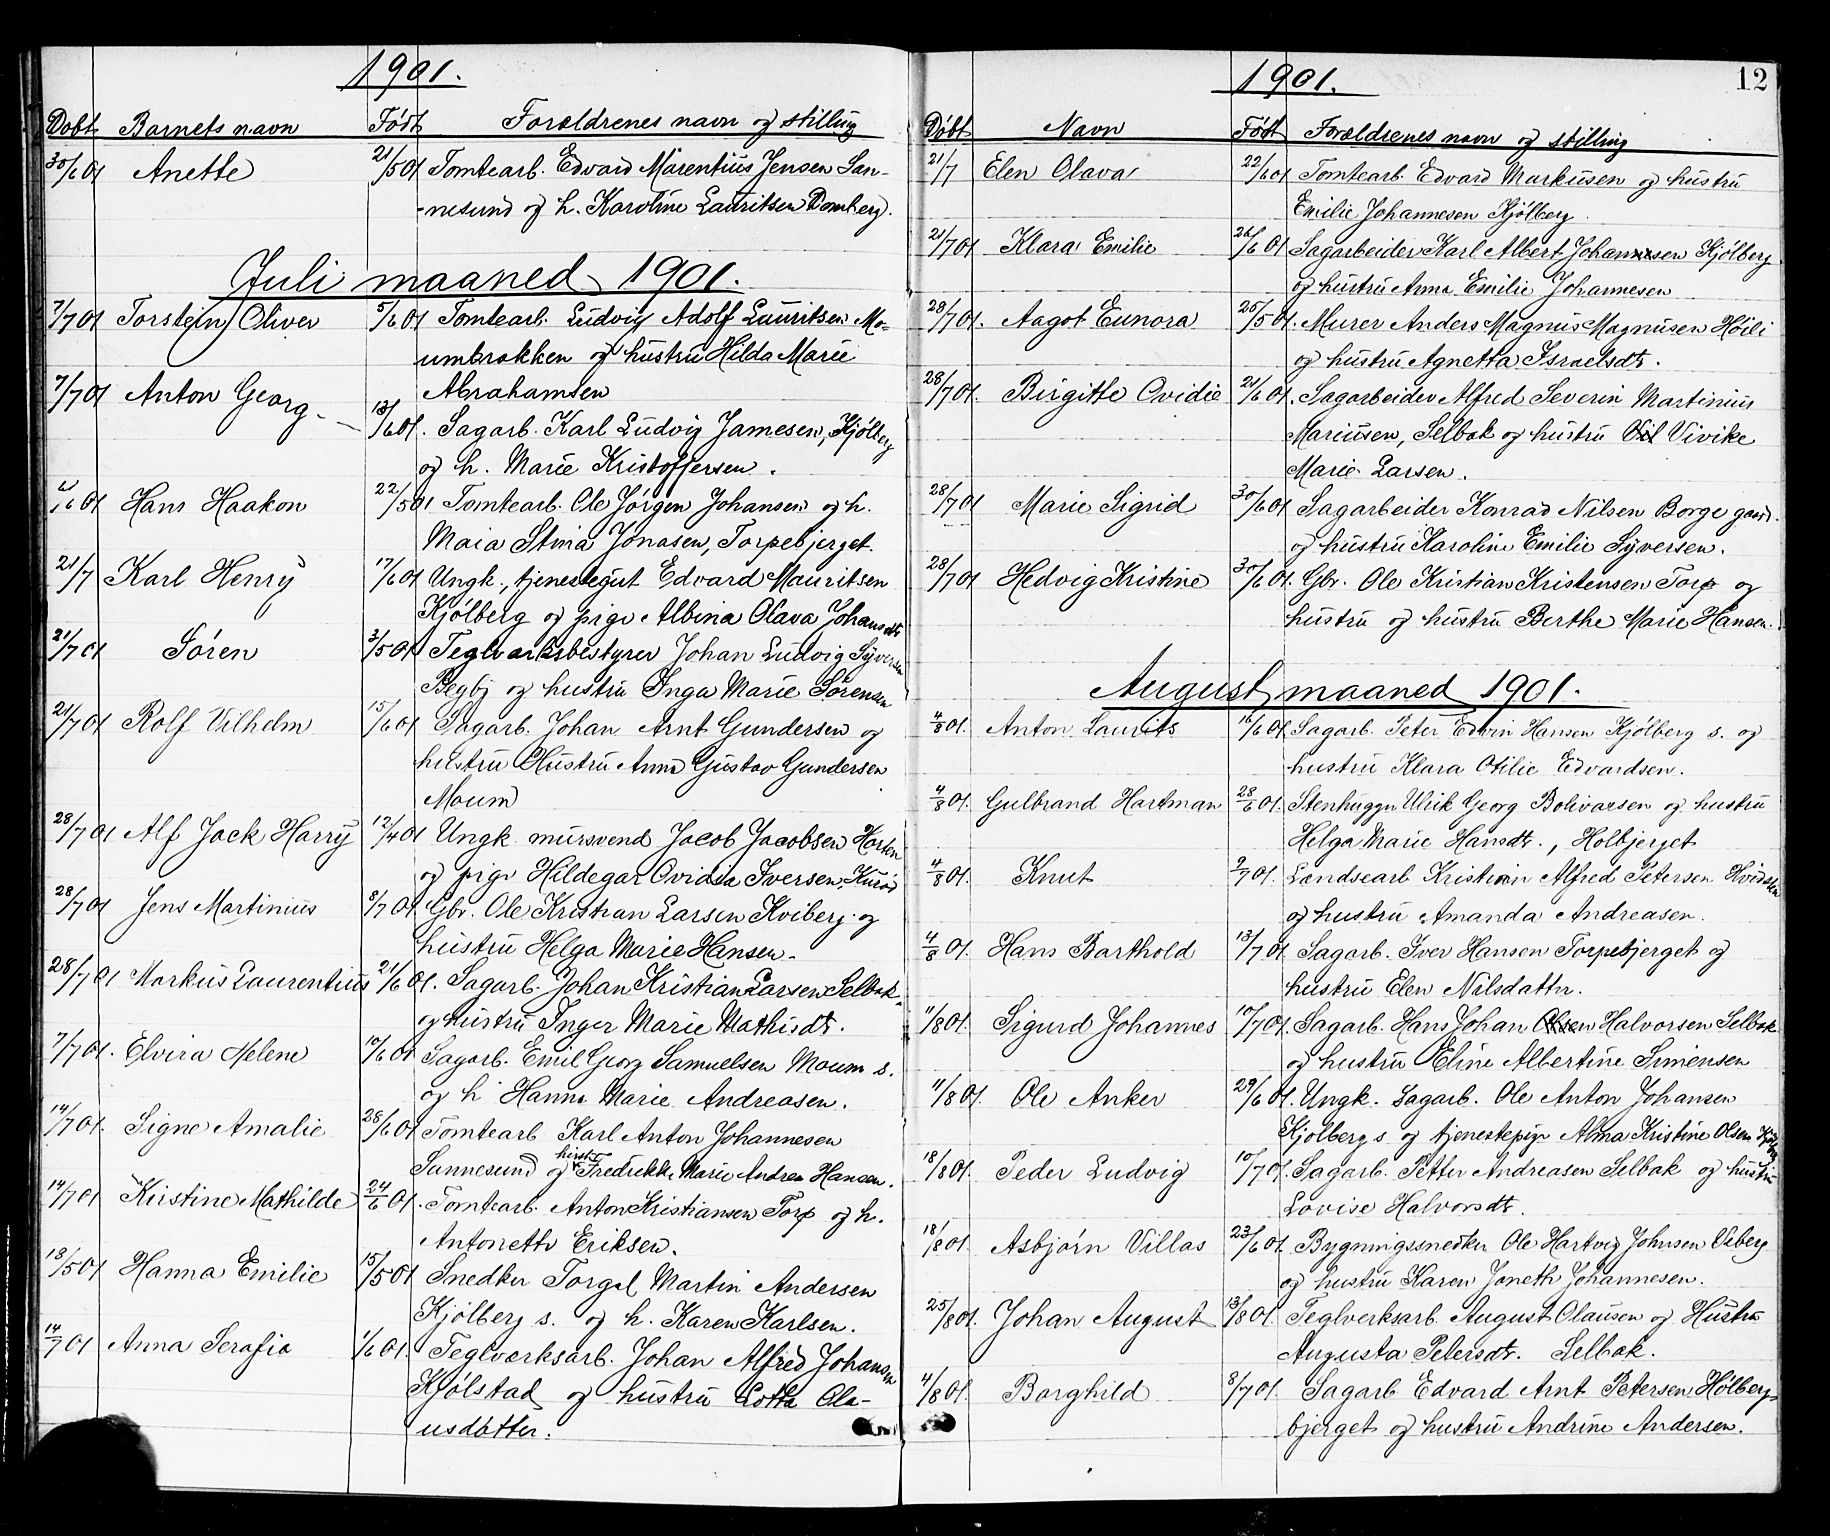 1901.
Døbt Barnets navn Født Forældrenes navn og stilling
30/6 01 Anette 21/5 01 Tomtearb. Edvard Marentius Jensen San-
-nesund og h. Karoline Lauritsen Domberg.
Juli maaned 1901.
7/7 01 Torstein Oliver 5/6 01 Tomtearb. Ludvig Adolf Lauritsen Mo-
umbrækken og hustru Hilda Marie
7/7 01 Anton Georg - Abrahamsen
13/6 01. Sagarb. Karl Ludvig Jamesen, Kjølberg
og h. Marie Kristoffersen.
/6 01 Hans Haakon 22/5 01 Tomtearb. Ole Jørgen Johansen og h.
Maia Stina Jonasen, Torpebjerget.
21/7 Karl Henry 17/6 01 Ungk., tjenestegut Edvard Mauritsen
Kjølberg og pige Albina Olava Johansdt
21/7 01 Søren 3/5 01 Teglværksbestyrer Johan Ludvig Syversen
Begby og hustru Inga Marie Sørensen
21/7 01 Rolf Vilhelm 15/6 01 Sagarb. Johan Arnt Gundersen og
hustru Hustru Anna Gustav Gundersen
Moum
28/7 01 Alf Jack Harry 12/4 01 Ungk mursvend Jacob Jacobsen Horten
og pige Hildegar Ovidia Iversen, Kurød
28/7 01 Jens Martinius 8/7 01 Gbr. Ole Kristian Larsen Kviberg og
hustru Helga Marie Hansen.
28/7 01 Markus Laurentius 21/6 01. Sagarb. Johan Kristian Larsen Selbak
og hustru Inger Marie Mathisdt.
7/7 01. Elvira Helene 10/6 01 Sagarb. Emil Georg Samuelsen Moum s.
og h Hanna Marie Andreasen.
14/7 01. Signe Amalie 28/6 01 Tomtearb Karl Anton Johannesen
Sannesund og hustr Fredrikke Marie Andrea Hansen.
14/7 01 Kristine Mathilde 24/6 01. Tomtearb. Anton Kristiansen Torp og h.
Antonette Eriksen.
18/5 01 Hanna Emilie 15/5 01 Snedker Torgal Martin Andersen
Kjølberg s. og h. Karen Karlsen.
14/7 01 Anna Serafia 1/6 01. Teglværksarb. Johan Alfred Johansen
Kjølstad og hustru Lotta Ola-
usdatter.
12
1901.
Døbt Navn Født Forældrenes navn og stilling
21/7 Elen Olava 22/6 01 Tomtearb. Edvard Markusen og hustru
Emilie Johannesen Kjølberg.
21/7 01 Klara Emilie 26/6 01 Sagarbeider Karl Albert Johannesen Kjølberg
og hustru Anna Emilie Johannesen
28/7 01. Aagot Eunora 25/5 01. Murer Anders Magnus Magnusen Høili
og hustru Agnetta Israelsdt.
28/7 01. Birgitte Ovidie 21/6 01. Sagarbeider Alfred Severin Martinius
Mariusen, Selbak og hustru Vil Vivike
Marie Larsen.
28/7 01 Marie Sigrid 30/6 01 Sagarbeider Konrad Nilsen Borge gaard.
og hustru Karoline Emilie Syversen.
28/7 01 Hedvig Kristine 30/6 01. Gbr. Ole Kristian Kristensen Torp og
hustru og hustru Berthe Marie Hansen.
August maaned 1901.
4/8 01. Anton Laurits 16/6 01 Sagarb. Peter Edvin Hansen Kjølberg s. og
hustru Klara Otilie Edvardsen.
4/8 01. Gulbrand Hartman 28/6 01. Stenhugger Ulrik Georg Bolivarsen og hustru
Helga Marie Hansdt., Holbjerget
4/8 01. Knut 2/7 01. Landsearb Kristian Alfred Petersen Hvidsten
og hustru Amanda Andreasen.
4/8 01. Hans Barthold 13/7 01 Sagarb. Iver Hansen Torpebjerget og
hustru Elen Nilsdatter.
11/8 01. Sigurd Johannes 10/7 01 Sagarb. Hans Johan Olsen Halvorsen Selbak
og hustru Eline Albertine Simensen
11/8 01. Ole Anker 29/6 01. Ungk. Sagarb. Ole Anton Johansen
Kjølberg s og tjenestepige Alma Kristine Olsen Kjølberg
18/8 01. Peder Ludvig 10/7 01. Sagarb. Petter Andreasen Selbak og hustru
Lovise Halvorsdt.
18/8 01. Asbjørn Villas 23/6 01. Bygningssnedker Ole Hartvig Johnsen Visberg
og hustru Karen Joneth Johannesen.
25/8 01. Johan August 13/8 01 Teglverksarb. August Olausen og Hustru
Augusta Petersdt. Selbak.
4/8 01. Borghild 8/7 01. Sagarb Edvard Arnt Petersen Hølberg-
bjerget og hustru Andrine Andersen.